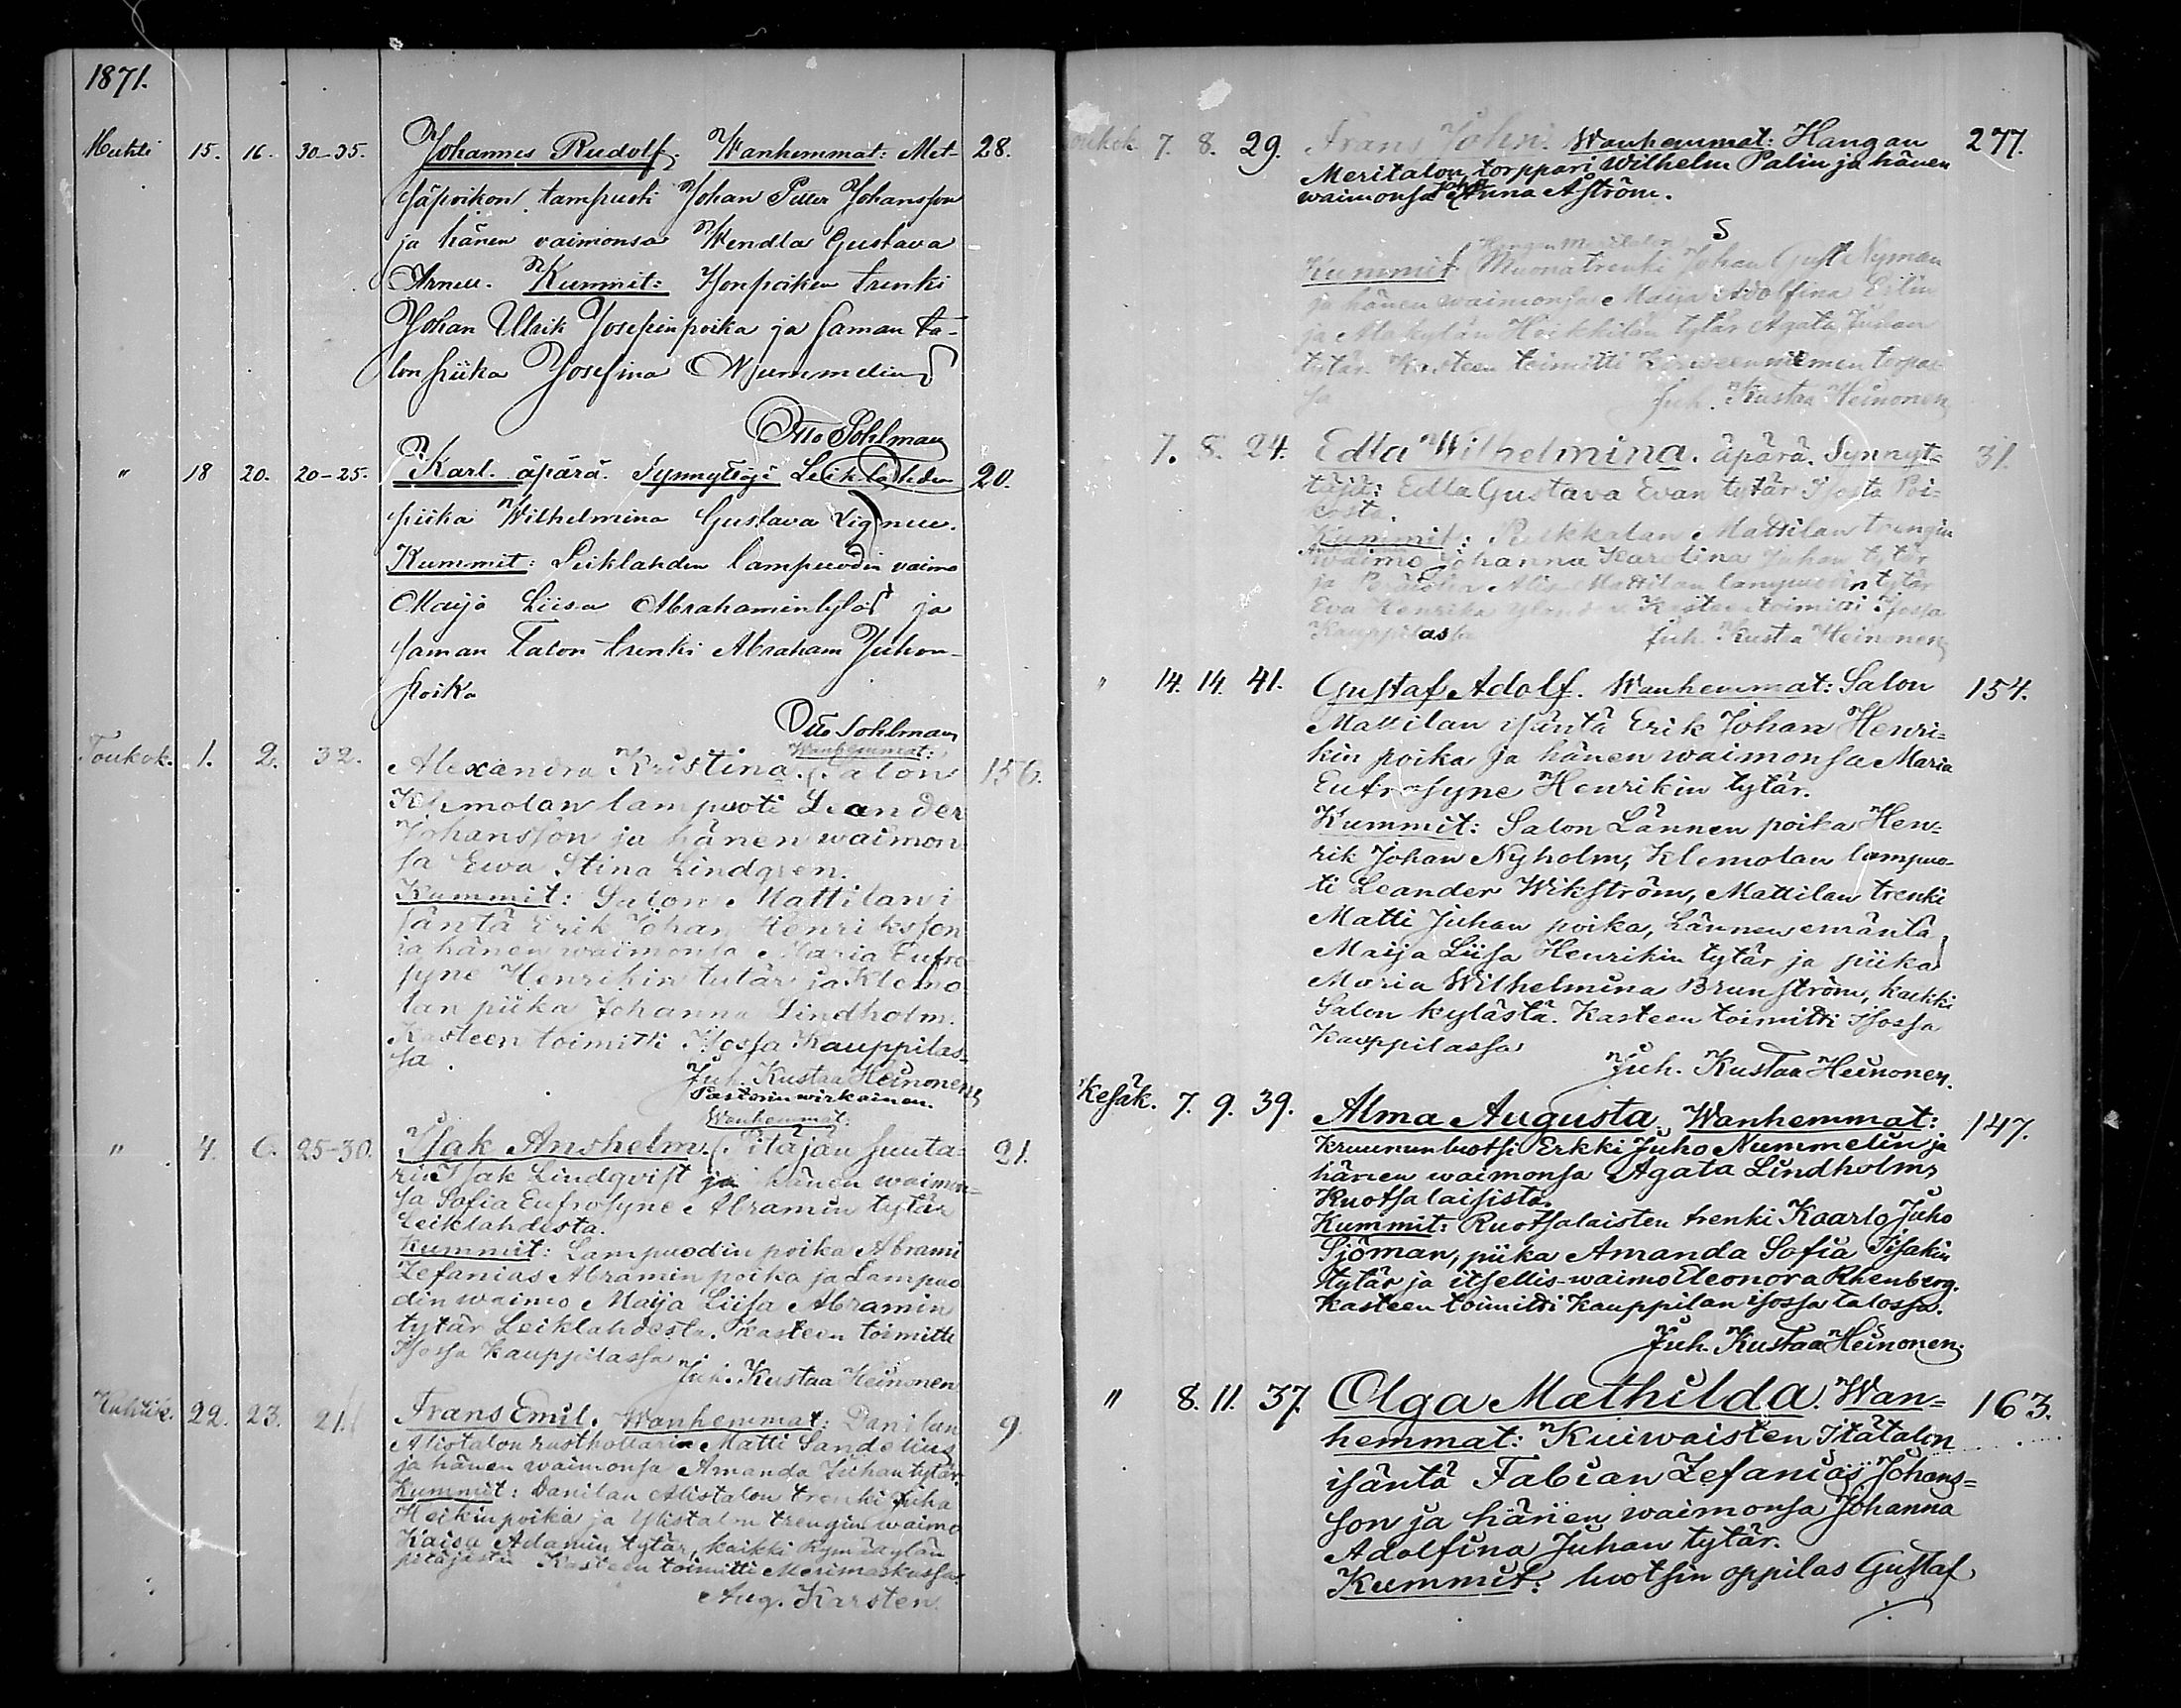 1871.
Huhti 15. 16. 30-35. Johannes Rudolf. Wanhemmat: Met- 28.
säpoikon lampuoti Johan Petter Johansson
ja hänen vaimonsa Wendla Gustava
Kummit: trenki
Johan Ulrik Josefinpoika ja saman ta-
lon piika Josefina Nummelin
Otto Sohlman
" 18 20. 20-25. Karl. äpärä. Synnyttäjä Leiklahden 20.
piika Wilhelmina Gustava
Kummit: Leiklahden lampuodin vaimo
Maija Liisa Abrahamintytär ja
saman Talon trenki Abraham Juhon-
poika
Otto Sohlman
Wanhemmat:
Toukok. 1. 2. 32. Alexandra Kristina. (Salon 156.
Klemolan lampuoti Leander
Johansson ja hänen waimon-
sa Ewa Stina Lindgren.
Kummit: Salon Mattilan i
säntä Erik Johan Henriksson
ja hänen waimonsa Maria Eufro
syne Henrikin tytär ja Klemo
lan piika Johanna Lindholm.
Kasteen toimitti Isossa Kauppilas-
sa.
Juh. Kustaa Heinonen
Pastorin wirkainen.
Wanhemmat:
" 4. 6. 25-30. Isak Anshelm. (Pitäjän suuta- 21.
ri Isak Lindqvist ja hänen waimon-
sa Sofia Eufrosyne Abramin tytär
Leiklahdesta.
Kummit: Lampuodin poika Abrami
Zefanias Abramin poika ja Lampuo
din waimo Maija Liisa Abramin
tytär Leiklahdesta. Kasteen toimitti
Isossa Kauppilassa
Juh. Kustaa Heinonen
Huhtik. 22. 23. 21. Frans Emil. Wanhemmat: Danilan 9.
Alistalon rusthollari Matti Sandelius
ja hänen waimonsa Amanda Juhan tytär.
Kummit: Danilan Alistalon trenki Juha
Heikin poika ja Ylistalon trengin waimo
Kaisa Adamin tytär, kaikki
pitäjästä Kasteen toimitti Merimaskussa.
Aug. Karsten.
Toukok. 7. 8. 29. Frans John. Wanhemmat: Hangan 277.
Meritalon torppari Wilhelm Palin ja hänen
waimonsa Anna Åström.
Hangan Meritalon
Kummit (Muonatrenki Johan Gust Nyman
ja hänen waimonsa Maija Adolfina
ja Alakylän Heikkilän tytär Agata Juhan
tytär. Kasteen toimitti torpas-
sa
Juh. Kustaa Heinonen
7. 8. 24. Edla Wilhelmina. äpärä. Synnyt- 31.
täjä: Edla Gustava Evan tytär Isosta Poi-
kosta.
Kummit: Mattilan trengin
waimo Johanna Karolina Juhan tytär
ja Mattilan lampuodin tytär
Eva Henrika Kasteen toimitti Isossa
Kauppilassa
Juh. Kustaa Heinonen
" 14. 14. 41. Gustaf Adolf. Wanhemmat: Salon 154.
Mattilan isäntä Erik Johan Henri-
kin poika ja hänen waimonsa Maria
Eufrosyne Henrikin tytär.
Kummit: Salon Lännen poika Hen-
rik Johan Nyholm, Klemolan lampuo-
ti Leander Wikström, Mattilan trenki
Matti Juhan poika, Lännen emäntä
Maija Liisa Henrikin tytär ja piika
Maria Wilhelmina Brunström, kaikki
Salon kylästä. Kasteen toimitti Isossa
Kauppilassa
Juh. Kustaa Heinonen.
Kesäk. 7. 9. 39. Alma Augusta. Wanhemmat: 147.
Kruunun luotsi Erkki Juho Nummelin ja
hänen waimonsa Agata Lindholm,
Ruotsalaisista.
Kummit: Ruotsalaisten trenki Kaarlo Juho
Sjöman, piika Amanda Sofia Iisakin
tytär ja itsellis-waimo Eleonora Rhenberg.
Kasteen toimitti Kauppilan isossa talossa.
Juh. Kustaa Heinonen.
" 8. 11. 37. Olga Mathilda. Wan- 163.
hemmat: Kuiwaisten Itätalon
isäntä Fabian Zefanias Johans-
son ja hänen waimonsa Johanna
Adolfina Juhan tytär.
Kummit: luotsin oppilas Gustaf